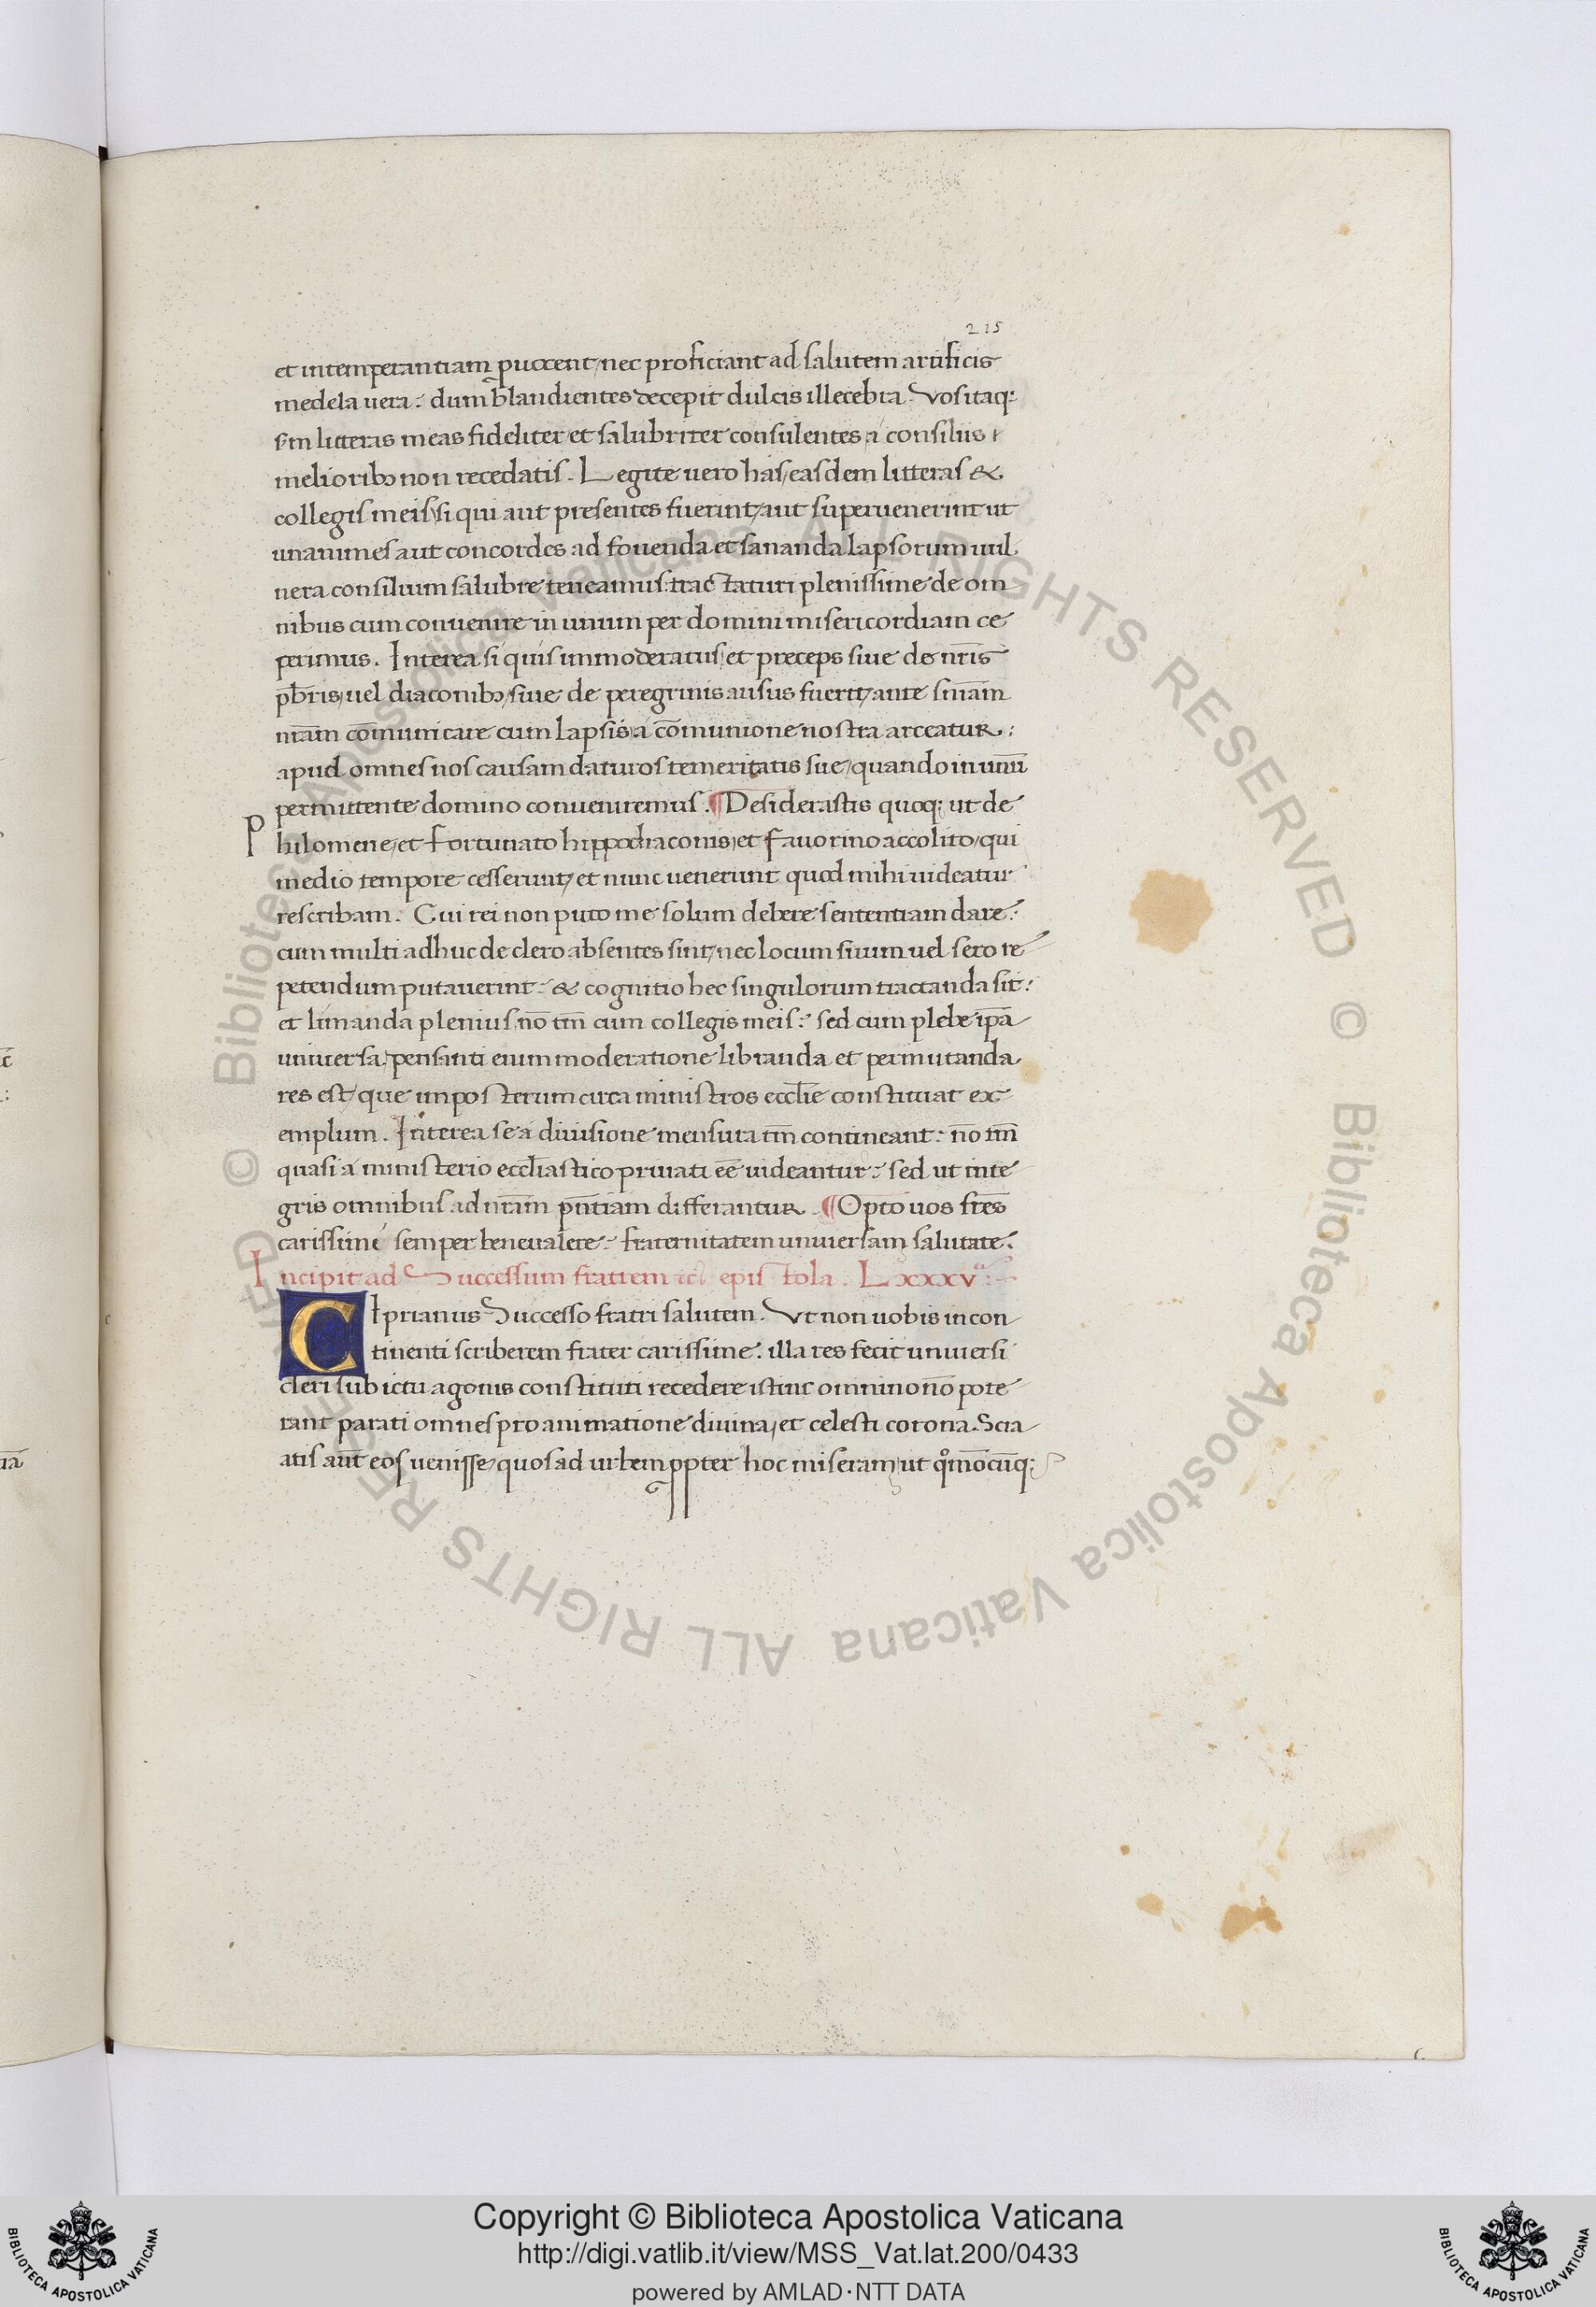 215
et intemperantiam puocent, nec proficiant ad salutem artificis
medela vera: dum blandientes decepit dulcis illecebra. Vos itaq:
sm̄ litteras meas fideliter et salubriter consulentes a consiliis
meliorib; non recedatis. Legite vero has easdem litteras &
collegis meis si qui aut presentes fuerint, aut supervenerint ut
unanimes aut concordes ad fovenda et sananda lapsorum vul
nera consilium salubre teneamus: tractaturi plenissime de om
nibus cum convenire in unum per domini misericordiam ce
perimus. Interea si quis immoderatus et preceps sive de nr̄is
pb̄ris, vel diaconib; sive de peregrinis ausus fuerit, ante sn̄iam
nr̄am cōmunicare cum lapsis, a cōmunione nostra arceatur:
apud omnes nos causam daturos temeritatis sue, quando in unū
permittente domino conveniremus. ¶ Desiderastis quoq: ut de
Philomene, et Fortunato hippodiaconis, et Favorino accolito, qui
medio tempore cesserunt, et nunc venerunt quod mihi videatur
rescribam. Cui rei non puto me solum debere sententiam dare:
cum multi adhuc de clero absentes sint, nec locum suum vel sero re
petendum putaverint: & cognitio hec singulorum tractanda sit:
et limanda plenius, nō tm̄ cum collegis meis: sed cum plebe ip̄a
universa. pensanti enim moderatione libranda et permutanda
res est, que imposterum circa ministros eccl̄ie constituat ex
emplum. Interea se a divisione mensura tm̄ contineant: nō tm̄
quasi a ministerio eccl̄iastico privati eē videantur: sed ut inte
gris omnibus ad nr̄am pn̄tiam differantur. ¶ Opto vos fr̄es
carissimi semper bene valere: fraternitatem universam salutate.
Incipit ad Successum fratrem epistola. LXXXV
Ciprianus Successo fratri salutem. Ut non vobis incon
tinenti scriberem frater carissime. illa res fecit universi
cleri sub ictu agonis constituti recedere istinc omnino nō pote
rant parati omnes pro animatione divina, et celesti corona. Scia
atis aūt eos venisse, quos ad urbem ppter hoc miseram, ut qm̊ōcūq:
© Biblioteca Apostolica Vaticana ALL RIGHTS RESERVED © Biblioteca Apostolica Vaticana ALL RIGHTS RESERVED
Copyright © Biblioteca Apostolica Vaticana
http://digi.vatlib.it/view/MSS_Vat.lat.200/0433
powered by AMLAD·NTT DATA
BIBLIOTECA APOSTOLICA VATICANA
BIBLIOTECA APOSTOLICA VATICANA